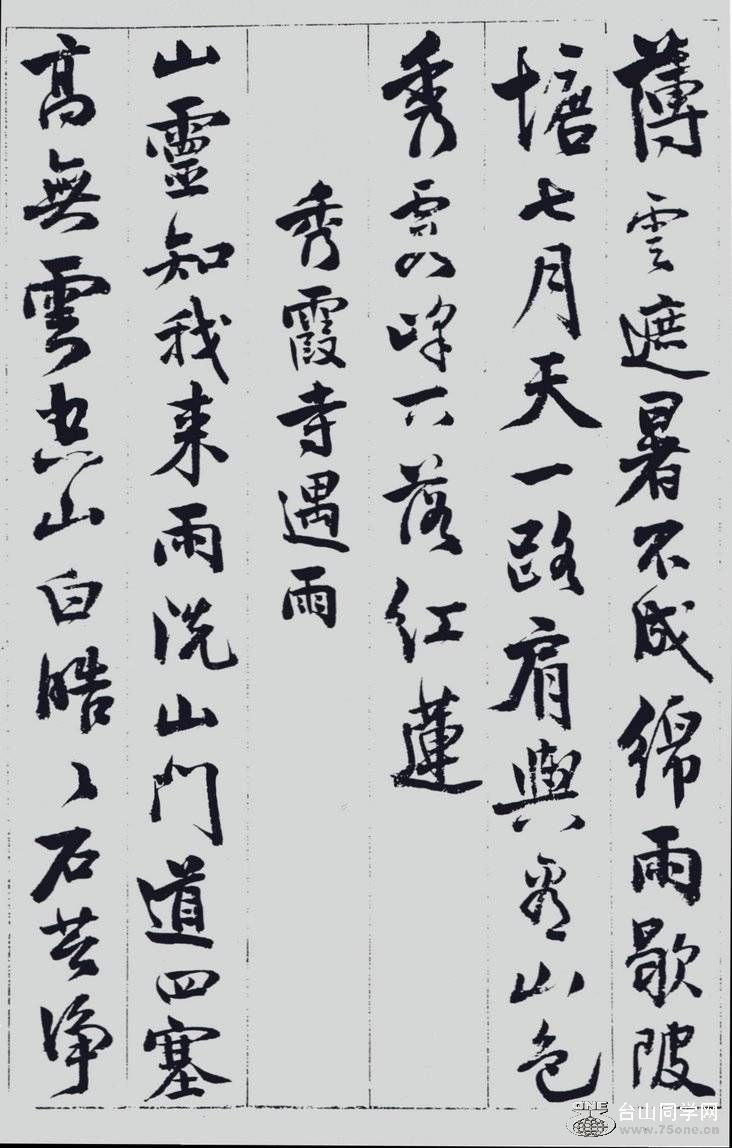 薄雲遮暑不成綿雨歇陂
塘七月天一路肩輿看山色
秀霞峰下落紅蓮
秀霞寺遇雨
山靈知我来雨洗山門道四塞
高無雲空山白皓〻石苔浄
ONE
台山同学网
www.75one.cn